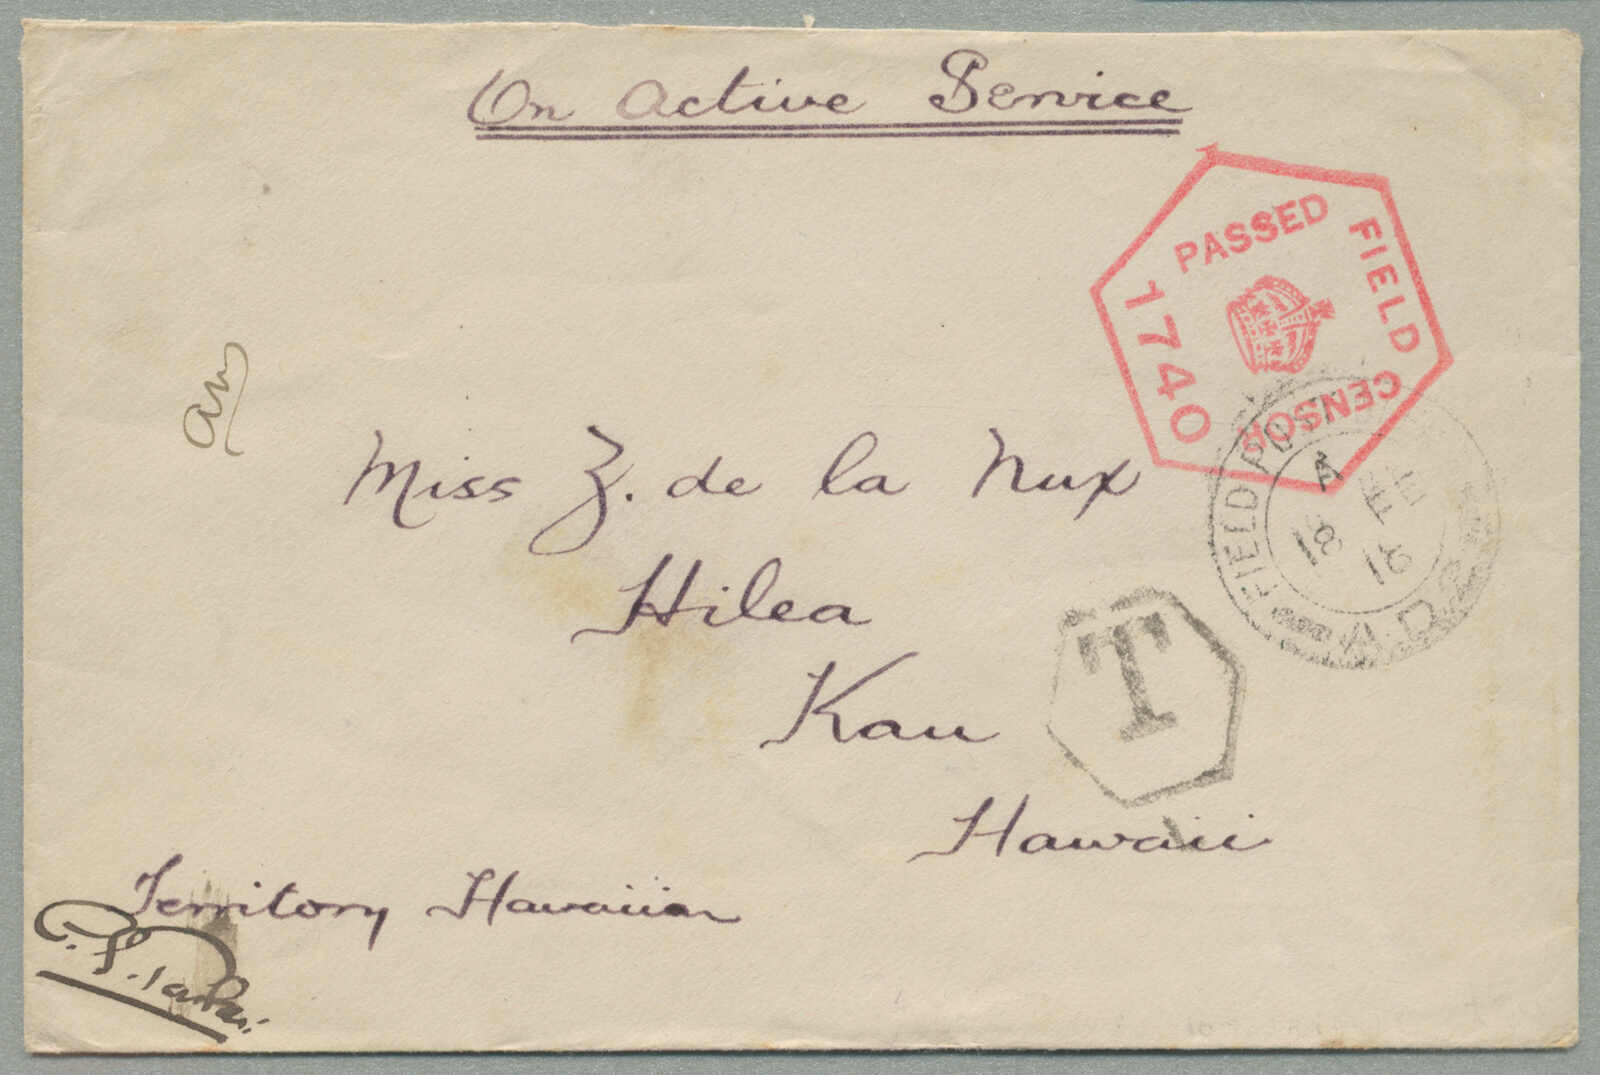 On Active Service
PASSED
FIELD
CENSOR
1740
FIELD POST
A
18
18
Miss Z. de la Nux
Hilea
T
Kau
Hawaii
Territory Hawaiian